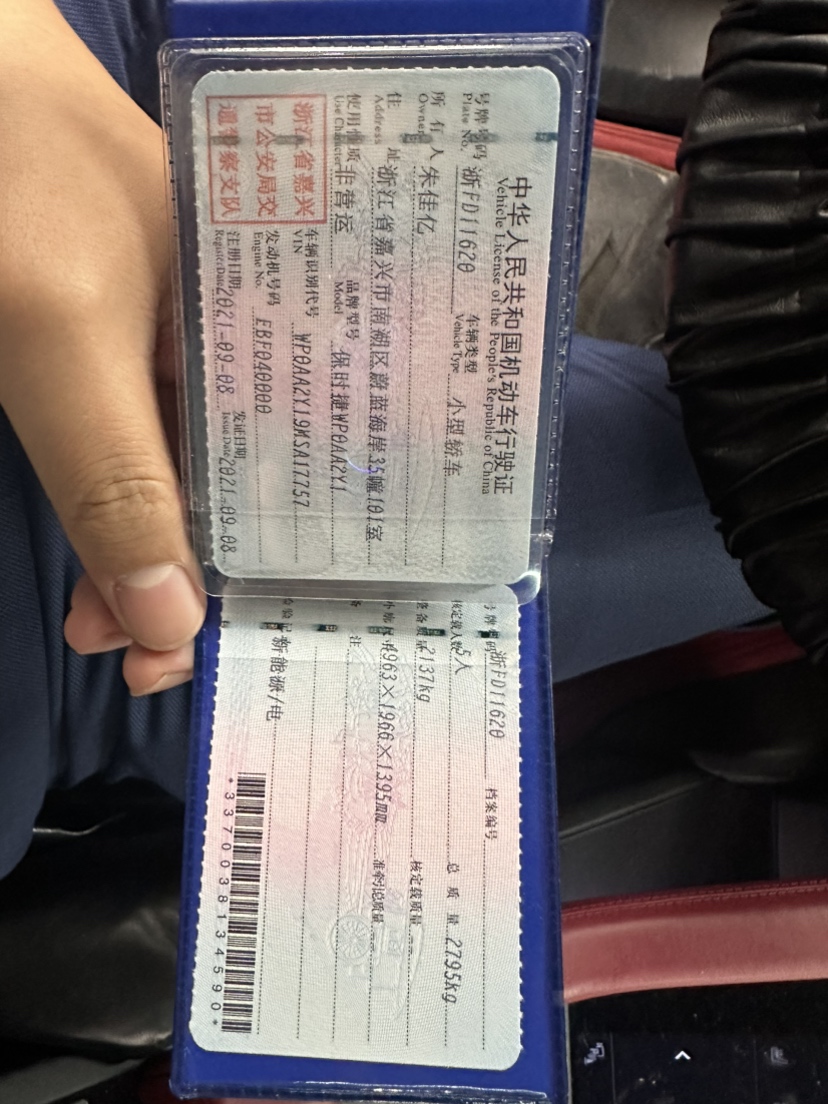 中华人民共和国机动车行驶证
Vehicle License of the People's Republic of China
号牌号码 浙FD11620 车辆类型 小型轿车
Plate No. Vehicle Type
所有人 朱佳亿
Owner
住址 浙江省嘉兴市南湖区蔚蓝海岸35幢101室
Address
使用性质 非营运 品牌型号 保时捷WP0AA2Y1
Use Character Model
浙江省嘉兴
市公安局交
通警察支队
车辆识别代号 WP0AA2Y19MSA17757
VIN
发动机号码 EBF040000
Engine No.
注册日期 2021-09-08 发证日期 2021-09-08
Register Date Issue Date
号牌号码 浙FD11620 档案编号
核定载人数 5人 总质量 2795kg
整备质量 2137kg 核定载质量
外廓尺寸 4963×1966×1395mm 准牵引总质量
备注
检验记录 新能源/电
*3370038134590*